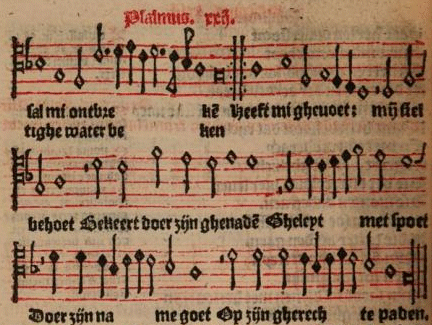 Psalmus. xxij.
sal mi ontbre kē Heeft mi ghevoet: mijn siel
tighe water be ken
behoet Gekeert doer zijn ghenadē Gheleyt met spoet
Doer zijn na me goet Op zijn gherech te paden.